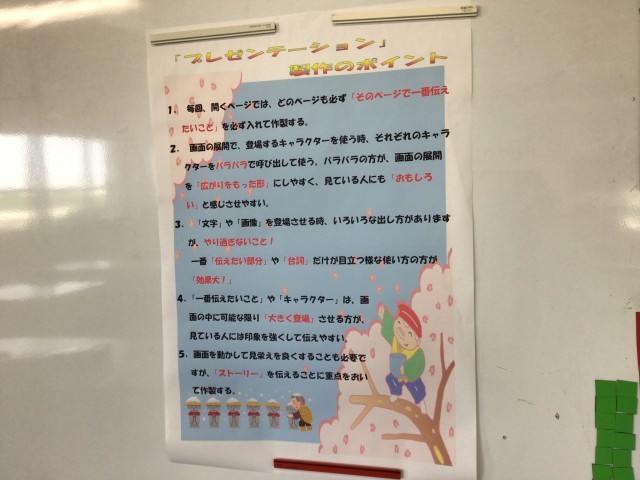 「プレゼンテーション」
製作のポイント
1. 毎回、開くページでは、どのページも必ず「そのページで一番伝え
たいこと」を必ず入れて作製する。
2. 画面の展開で、登場するキャラクターを使う時、それぞれのキャラ
クターをバラバラで呼び出して使う。バラバラの方が、画面の展開
を「広がりをもった形」にしやすく、見ている人にも「おもしろ
い」と感じさせやすい。
3. 「文字」や「画像」を登場させる時、いろいろな出し方があります
が、やり過ぎないこと!
一番「伝えたい部分」や「台詞」だけが目立つ様な使い方の方が
「効果大!」
4. 「一番伝えたいこと」や「キャラクター」は、画
面の中に可能な限り「大きく登場」させる方が、
見ている人には印象を強くして伝えやすい。
5. 画面を動かして見栄えを良くすることも必要で
すが、「ストーリー」を伝えることに重点をおい
て作製する。